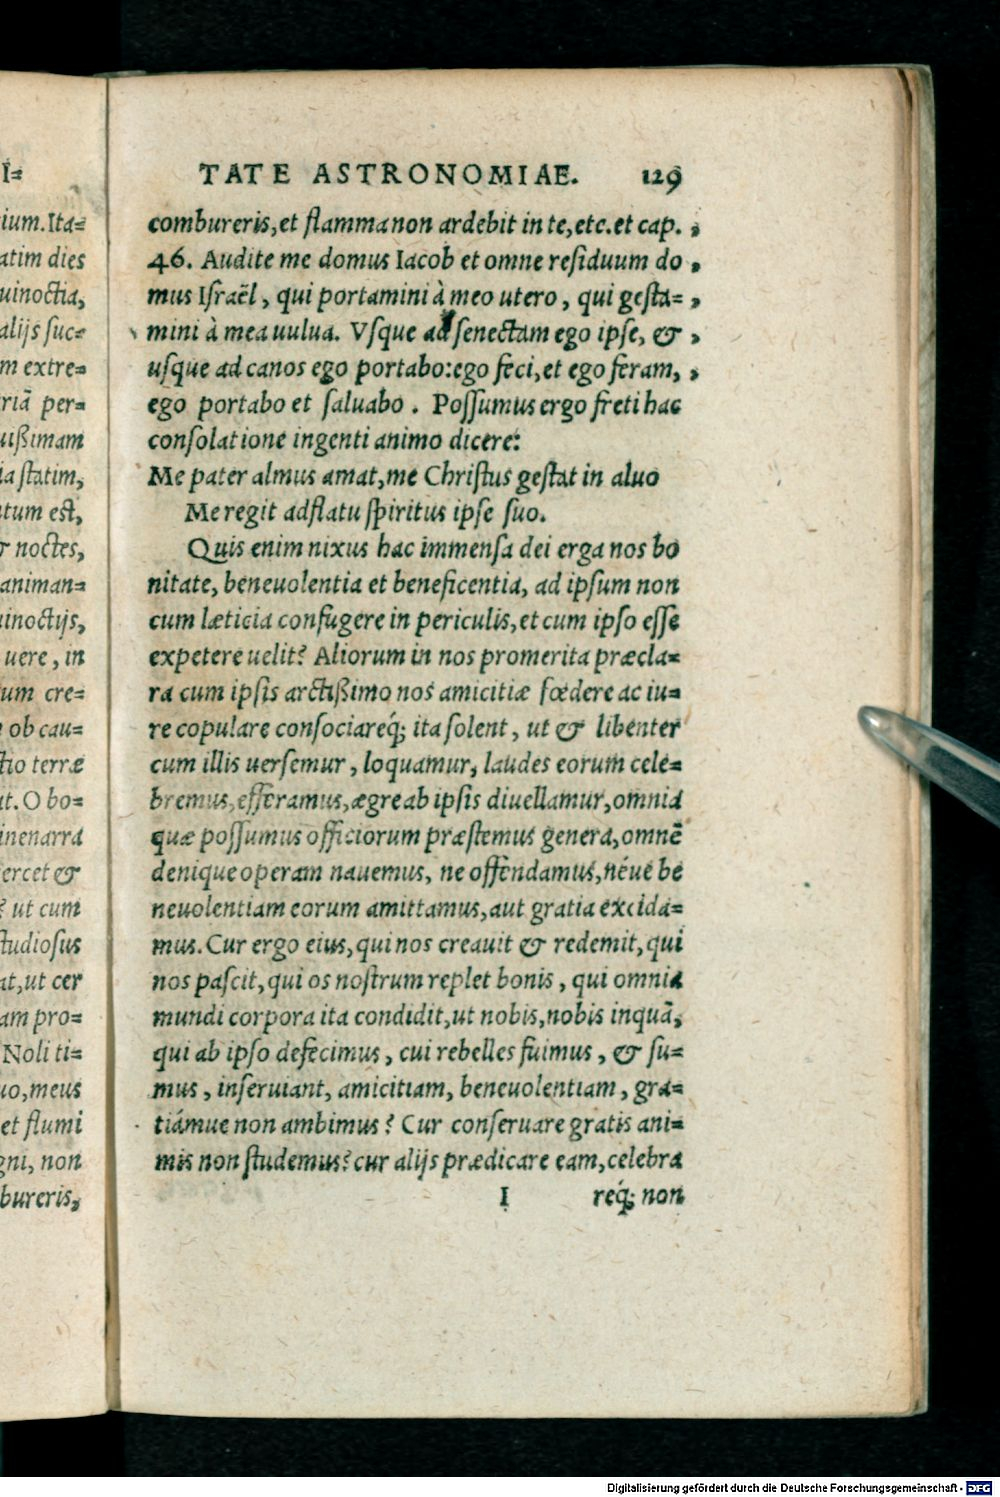 I=
ium. Ita=
atim dies
uinoctia,
alijs suc=
m extre=
riā per=
uißimam
ia statim,
tum est,
& noctes,
animan=
inoctijs,
uere, in
um cre=
ob cau=
tio terræ
t. O bo=
inenarra
ercet &
? ut cum
studiosus
at, ut cer
am pro=
Noli ti=
uo, meus
et flumi
gni, non
bureris,
TATE ASTRONOMIAE. 129
combureris, et flamma non ardebit in te, etc. et cap. ,
46. Audite me domus Iacob et omne residuum do ,
mus Israël, qui portamini à meo utero, qui gesta= ,
mini à mea uulua. Vsque ad senectam ego ipse, & ,
usque ad canos ego portabo: ego feci, et ego feram, ,
ego portabo et saluabo. Possumus ergo freti hac
consolatione ingenti animo dicere:
Me pater almus amat, me Christus gestat in aluo
Me regit adflatu spiritus ipse suo.
Quis enim nixus hac immensa dei erga nos bo
nitate, beneuolentia et beneficentia, ad ipsum non
cum læticia confugere in periculis, et cum ipso esse
expetere uelit? Aliorum in nos promerita præcla=
ra cum ipsis arctißimo nos amicitiæ fœdere ac iu=
re copulare consociareq́; ita solent, ut & libenter
cum illis uersemur, loquamur, laudes eorum cele=
bremus, efferamus, ægre ab ipsis diuellamur, omnia
quæ possumus officiorum præstemus genera, omnē
denique operam nauemus, ne offendamus, néue be
neuolentiam eorum amittamus, aut gratia excida=
mus. Cur ergo eius, qui nos creauit & redemit, qui
nos pascit, qui os nostrum replet bonis, qui omnia
mundi corpora ita condidit, ut nobis, nobis inquā,
qui ab ipso defecimus, cui rebelles fuimus, & su=
mus, inseruiant, amicitiam, beneuolentiam, gra=
tiámue non ambimus? Cur conseruare gratis ani=
mis non studemus? cur alijs prædicare eam, celebra
I req́; non
Digitalisierung gefördert durch die Deutsche Forschungsgemeinschaft - DFG